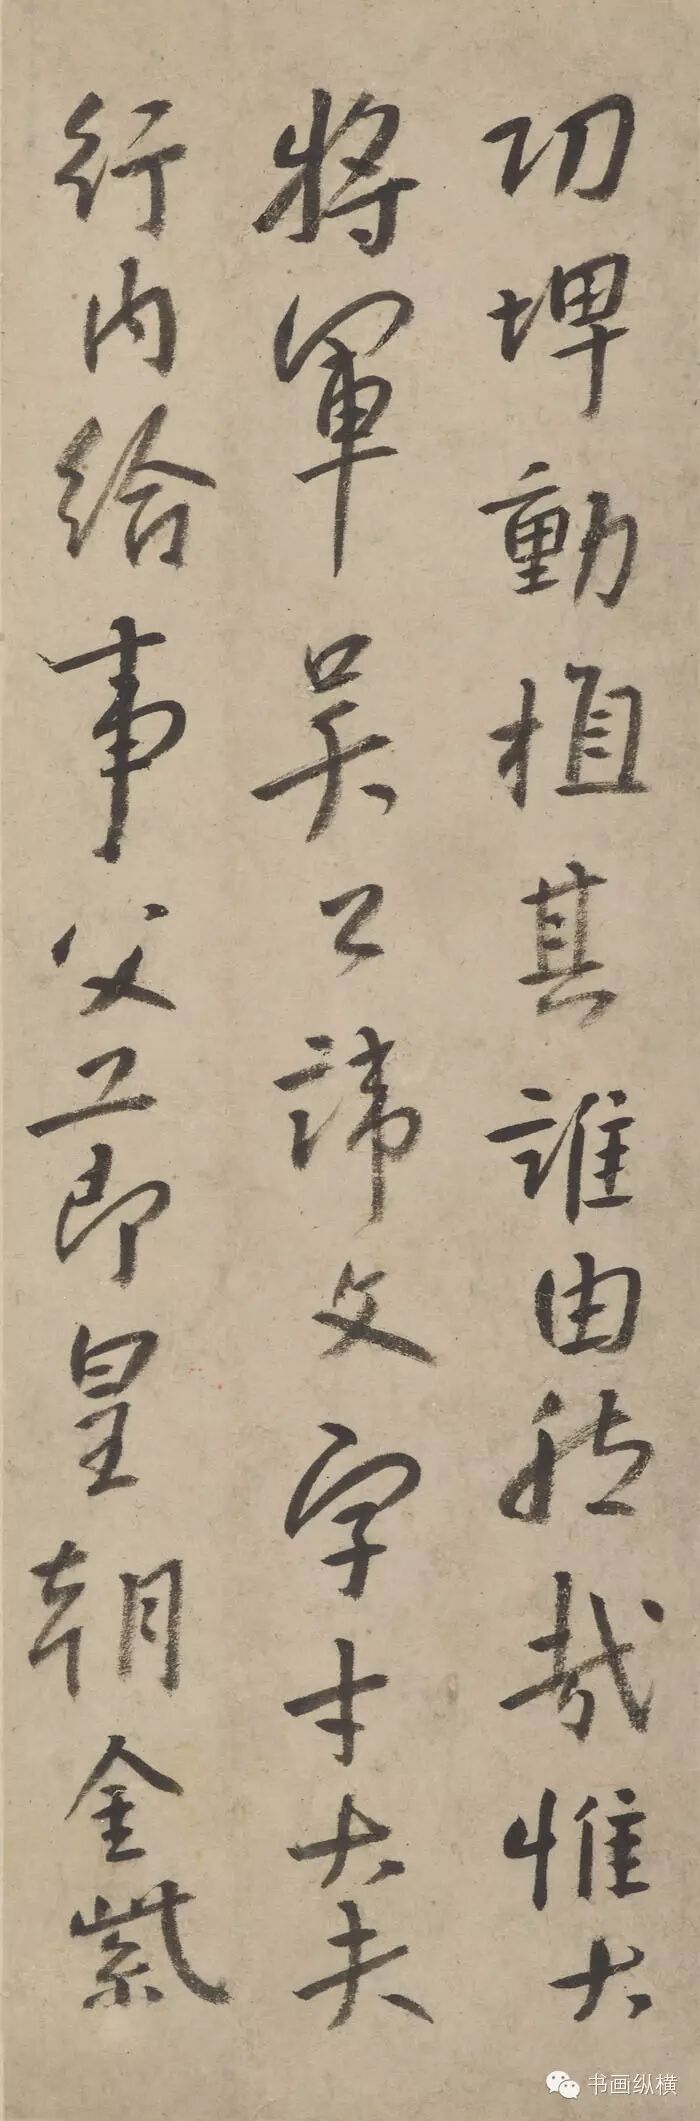 功埤動植其誰由然哉惟大
將軍吴公諱文字才大夫
行内給事父工部皇朝金紫
书画纵横